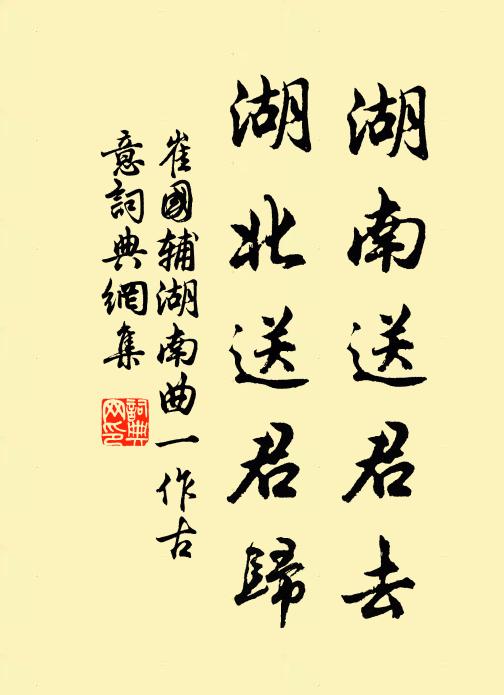 湖南送君去
湖北送君歸
崔國輔湖南曲一作古
意詞典網集
詞典
网印